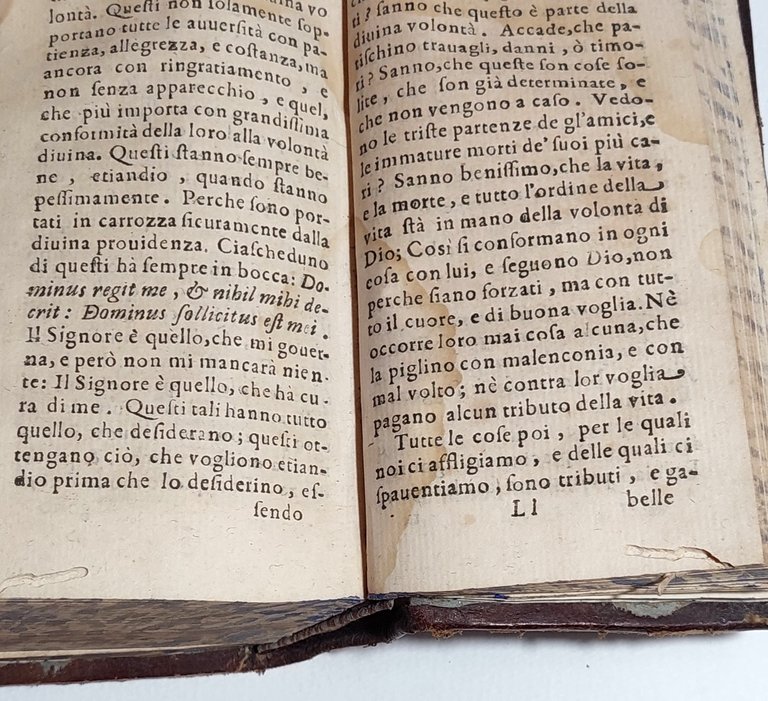 lontà. Queſti non ſolamente ſop-
portano tutte le auuerſità con pa-
tienza, allegrezza, e coſtanza, ma
ancora con ringratiamento, e
non ſenza apparecchio, e quel,
che più importa con grandiſſima
conformità della loro alla volontà
diuina. Queſti ſtanno ſempre be-
ne, etiandio, quando ſtanno
peſſimamente. Perche ſono por-
tati in carrozza ſicuramente dalla
diuina prouidenza. Ciaſcheduno
di queſti hà ſempre in bocca: Do-
minus regit me, & nihil mihi de-
erit: Dominus ſollicitus eſt mei.
Il Signore è quello, che mi gouer-
na, e però non mi mancarà nien-
te: Il Signore è quello, che hà cu-
ra di me. Queſti tali hanno tutto
quello, che deſiderano; queſti ot-
tengano ciò, che vogliono etian-
dio prima che lo deſiderino, eſ-
ſendo
ti? ſanno che queſto è parte della
diuina volontà. Accade, che pa-
tiſchino trauagli, danni, ò timo-
ri? Sanno, che queſte ſon coſe ſo-
lite, che ſon già determinate, e
che non vengono a caſo. Vedo-
no le triſte partenze de gl'amici, e
le immature morti de' ſuoi più ca-
ri? Sanno beniſſimo, che la vita,
e la morte, e tutto l'ordine della
vita ſtà in mano della volontà di
Dio; Così ſi conformano in ogni
coſa con lui, e ſeguono Dio, non
perche ſiano forzati, ma con tut-
to il cuore, e di buona voglia. Nè
occorre loro mai coſa alcuna, che
la piglino con malenconia, e con
mal volto; nè contra lor voglia
pagano alcun tributo della vita.
Tutte le coſe poi, per le quali
noi ci affligiamo, e delle quali ci
ſpauentiamo, ſono tributi, e ga-
Ll belle